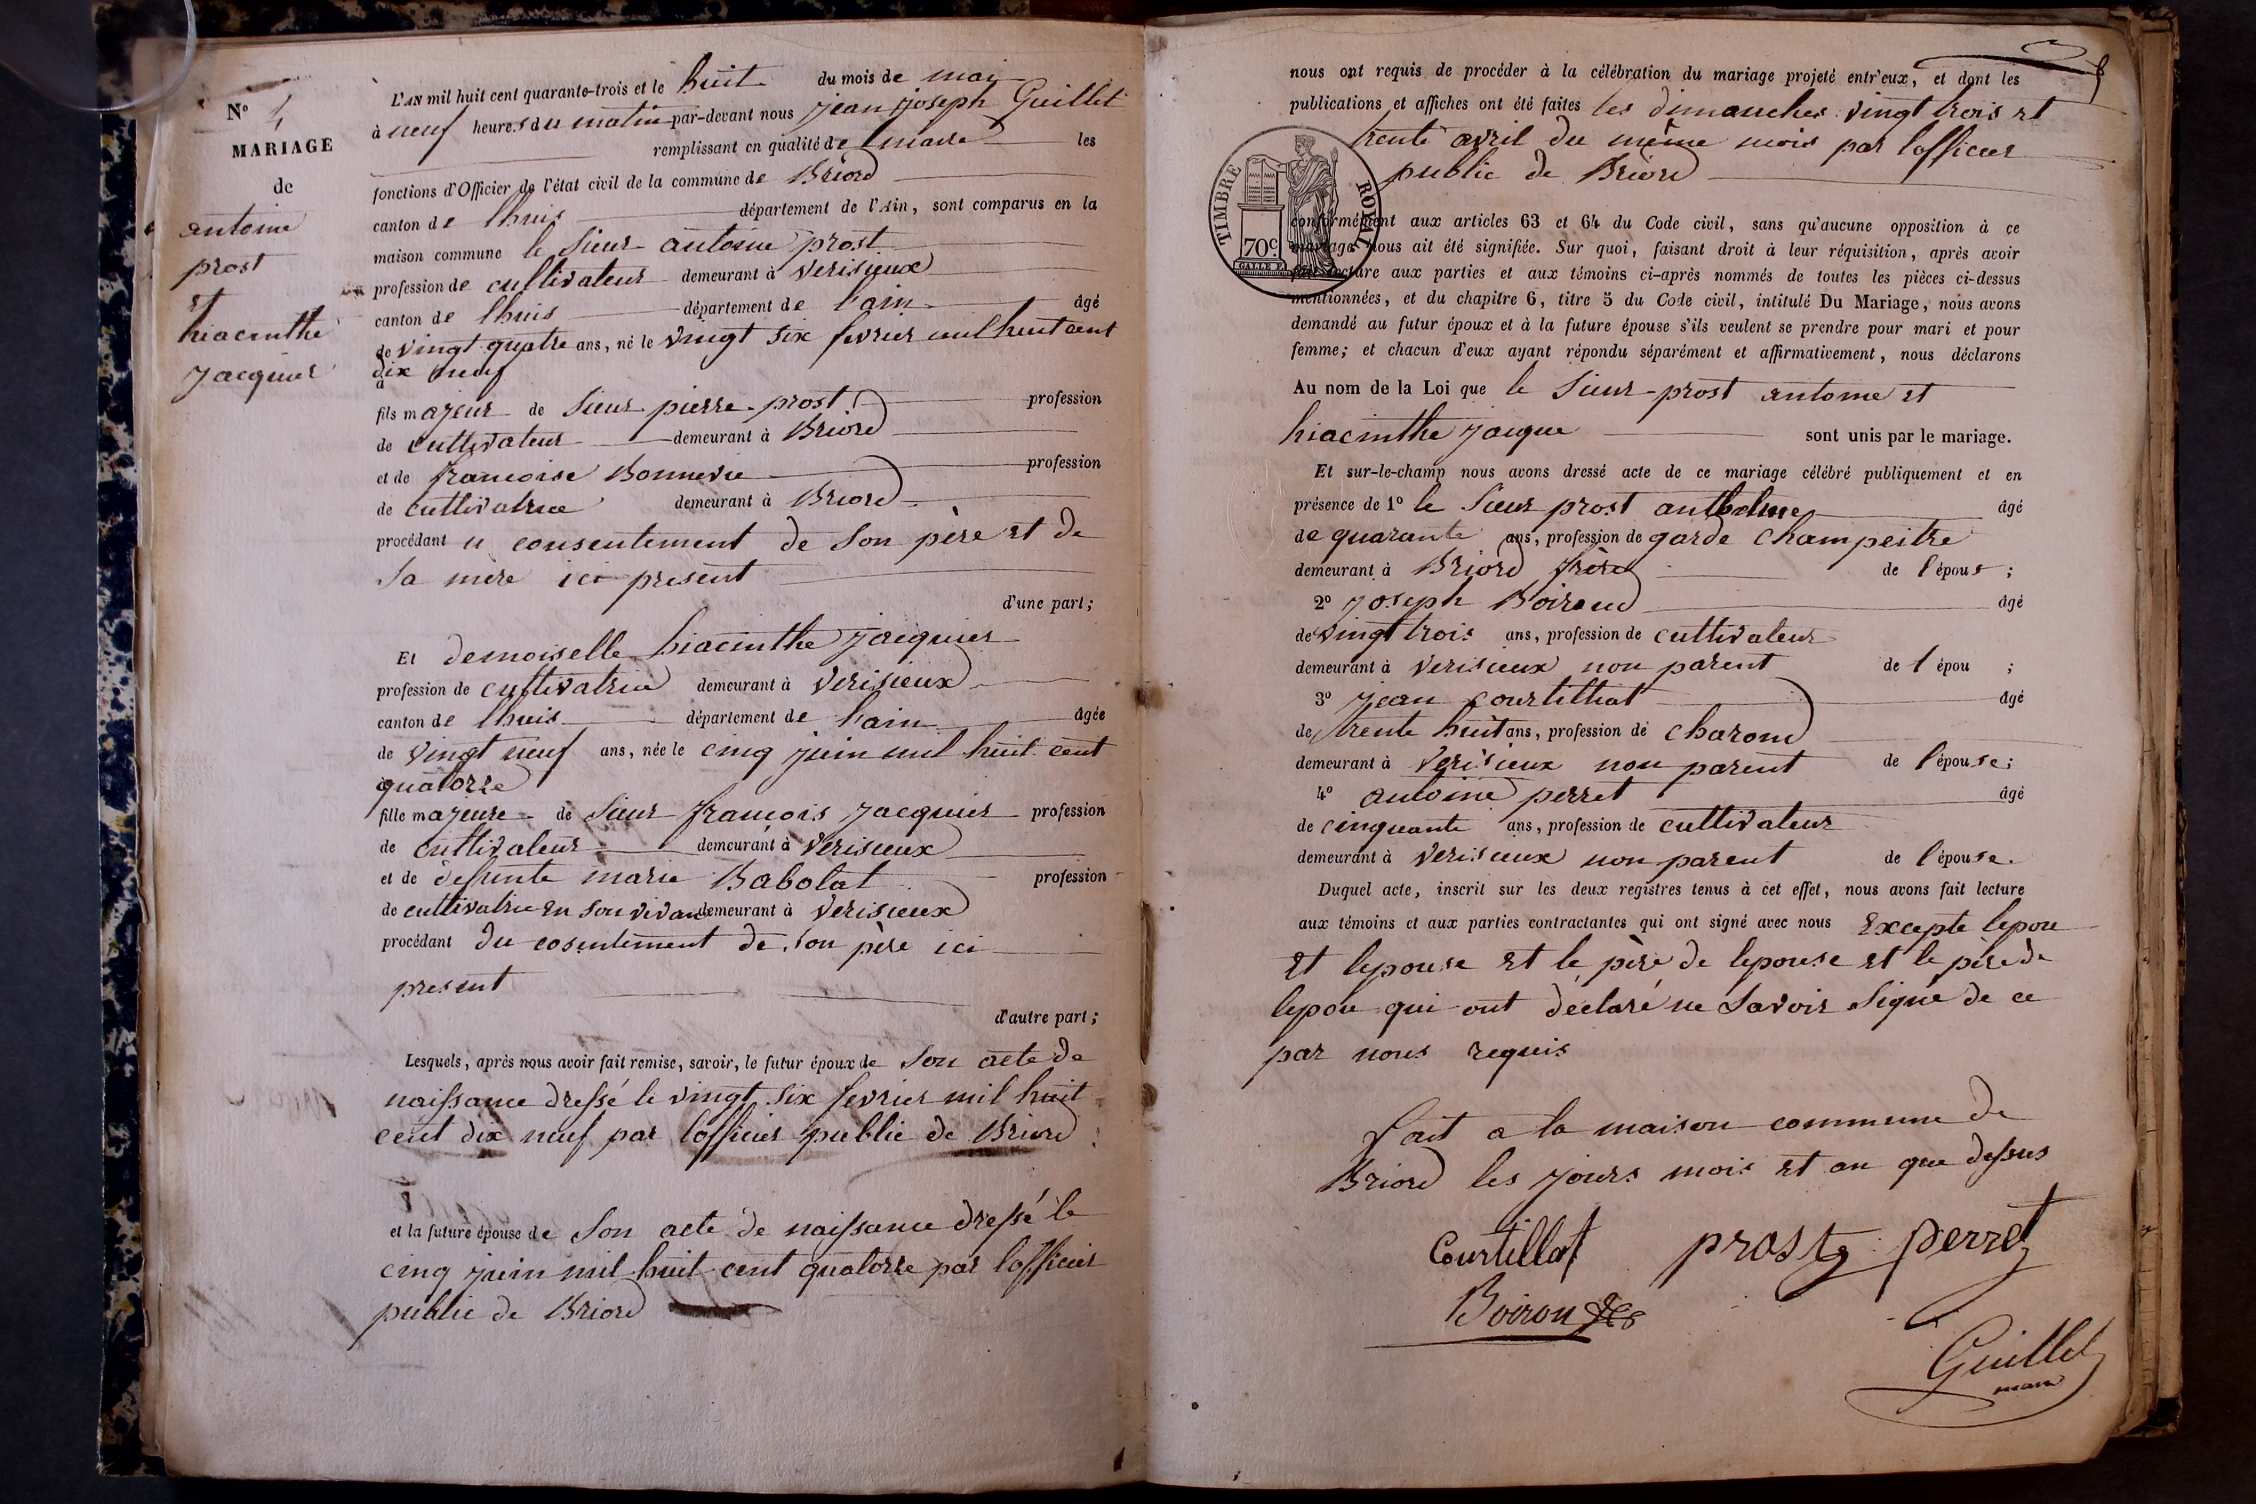 N° 4
MARIAGE
de
antoine
prost
et
hiacinthe
jacquier
L'AN mil huit cent quarante-trois et le huit du mois de mai
à neuf heures du matin par-devant nous jean joseph Guillet
remplissant en qualité de maire les
fonctions d'Officier de l'état civil de la commune de Briord
canton de lhuis département de l'Ain, sont comparus en la
maison commune le sieur antoine prost
profession de cultivateur demeurant à verisieux
canton de lhuis département de l'ain âgé
de vingt quatre ans, né le vingt six fevrier mil huit cent
dix neuf
fils majeur de sieur pierre prost profession
de cultivateur demeurant à Briord
et de francoise Bonnevie profession
de cultivatrice demeurant à Briord
procédant u consentement de son père et de
sa mère ici present
d'une part;
Et demoiselle hiacinthe jacquier
profession de cultivatrice demeurant à verisieux
canton de lhuis département de l'ain âgée
de vingt neuf ans, née le cinq juin mil huit cent
quatorze
fille majeure de sieur francois jacquier profession
de cultivateur demeurant à verisieux
et de defunte marie Babolat profession
de cultivatrice en son vivan demeurant à verisieux
procédant du cosentement de son père ici
present
d'autre part;
Lesquels, après nous avoir fait remise, savoir, le futur époux de son acte de
naissance dressé le vingt six fevrier mil huit
cent dix neuf par lofficier public de Briord
et la future épouse de son acte de naissance dressé le
cinq juin mil huit cent quatorze par lofficier
public de Briord
nous ont requis de procéder à la célébration du mariage projeté entr'eux, et dont les
publications et affiches ont été faites les dimanches vingt trois et
trente avril du même mois par lofficier
public de Briord
TIMBRE ROYAL
70 c.
conformément aux articles 63 et 64 du Code civil, sans qu'aucune opposition à ce
mariage nous ait été signifiée. Sur quoi, faisant droit à leur réquisition, après avoir
fait lecture aux parties et aux témoins ci-après nommés de toutes les pièces ci-dessus
mentionnées, et du chapitre 6, titre 5 du Code civil, intitulé Du Mariage, nous avons
demandé au futur époux et à la future épouse s'ils veulent se prendre pour mari et pour
femme; et chacun d'eux ayant répondu séparément et affirmativement, nous déclarons
Au nom de la Loi que le sieur prost antoine et
hiacinthe jacque sont unis par le mariage.
Et sur-le-champ nous avons dressé acte de ce mariage célébré publiquement et en
présence de 1° le sieur prost anthelme âgé
de quarante ans, profession de garde champeitre
demeurant à Briord frère de l'épous;
2° joseph Boiroud âgé
de vingt trois ans, profession de cultivateur
demeurant à verisieux non parent de l épou ;
3° jean courtilliat âgé
de trente huit ans, profession de charond
demeurant à verisieux non parent de l'épouse;
4° antoine perret âgé
de cinquante ans, profession de cultivateur
demeurant à verisieux non parent de l'épouse.
Duquel acte, inscrit sur les deux registres tenus à cet effet, nous avons fait lecture
aux témoins et aux parties contractantes qui ont signé avec nous Excepte lepou
et lepouse et le père de lepouse et le père de
lepou qui ont déclaré ne savoir signe de ce
par nous requis
fait a la maison commune de
Briord les jours mois et an que dessus
Courtillat prost perret
Boiron
Guillet
maire